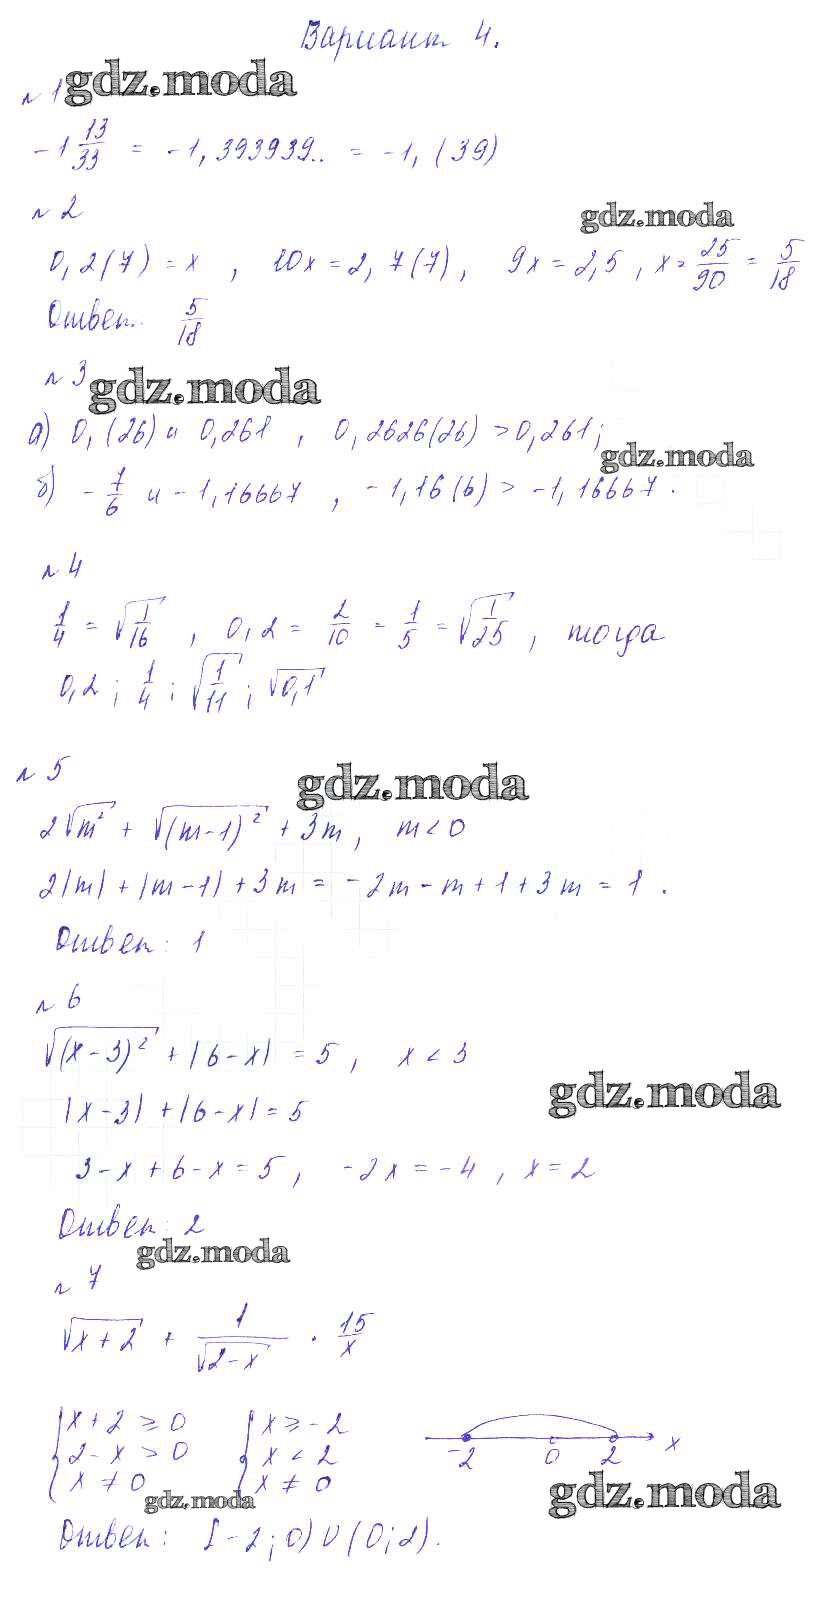 Вариант 4.
№ 1 gdz.moda
-1 13/33 = -1,393939.. = -1,(39)
№ 2
gdz.moda
0,2(7) = x , 10x = 2,7(7), 9x = 2,5 , x = 25/90 = 5/18
Ответ.. 5/18
№ 3 gdz.moda
а) 0,(26) и 0,261 , 0,2626(26) > 0,261;
gdz.moda
б) -7/6 и -1,16667 , -1,16(6) > -1,16667.
№ 4
1/4 = √(1/16) , 0,2 = 2/10 = 1/5 = √(1/25) , тогда
0,2 ; 1/4 ; √(1/11) ; √0,1
№ 5
gdz.moda
2√m² + √(m-1)² + 3m, m < 0
2|m| + |m-1| + 3m = -2m - m + 1 + 3m = 1 .
Ответ: 1
№ 6
√(x-3)² + |6-x| = 5, x < 3
gdz.moda
|x-3| + |6-x| = 5
3-x + 6-x = 5, -2x = -4 , x = 2
Ответ: 2
gdz.moda
№ 7
√x+2 + 1/√2-x · 15/x
{x+2 ≥ 0 {x ≥ -2
2-x > 0 x < 2
x ≠ 0 x ≠ 0
-2 0 2 x
gdz.moda
gdz.moda
Ответ: [-2;0)∪(0;2).